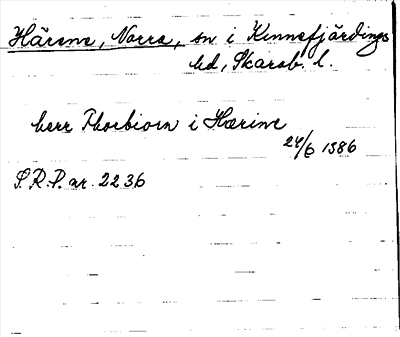 Härene, Norra, sn i Kinnefjärdings
hd, Skarab. l.
herr Thorbiorn i Hærine
24/6 1386
S.R.P. nr. 2236